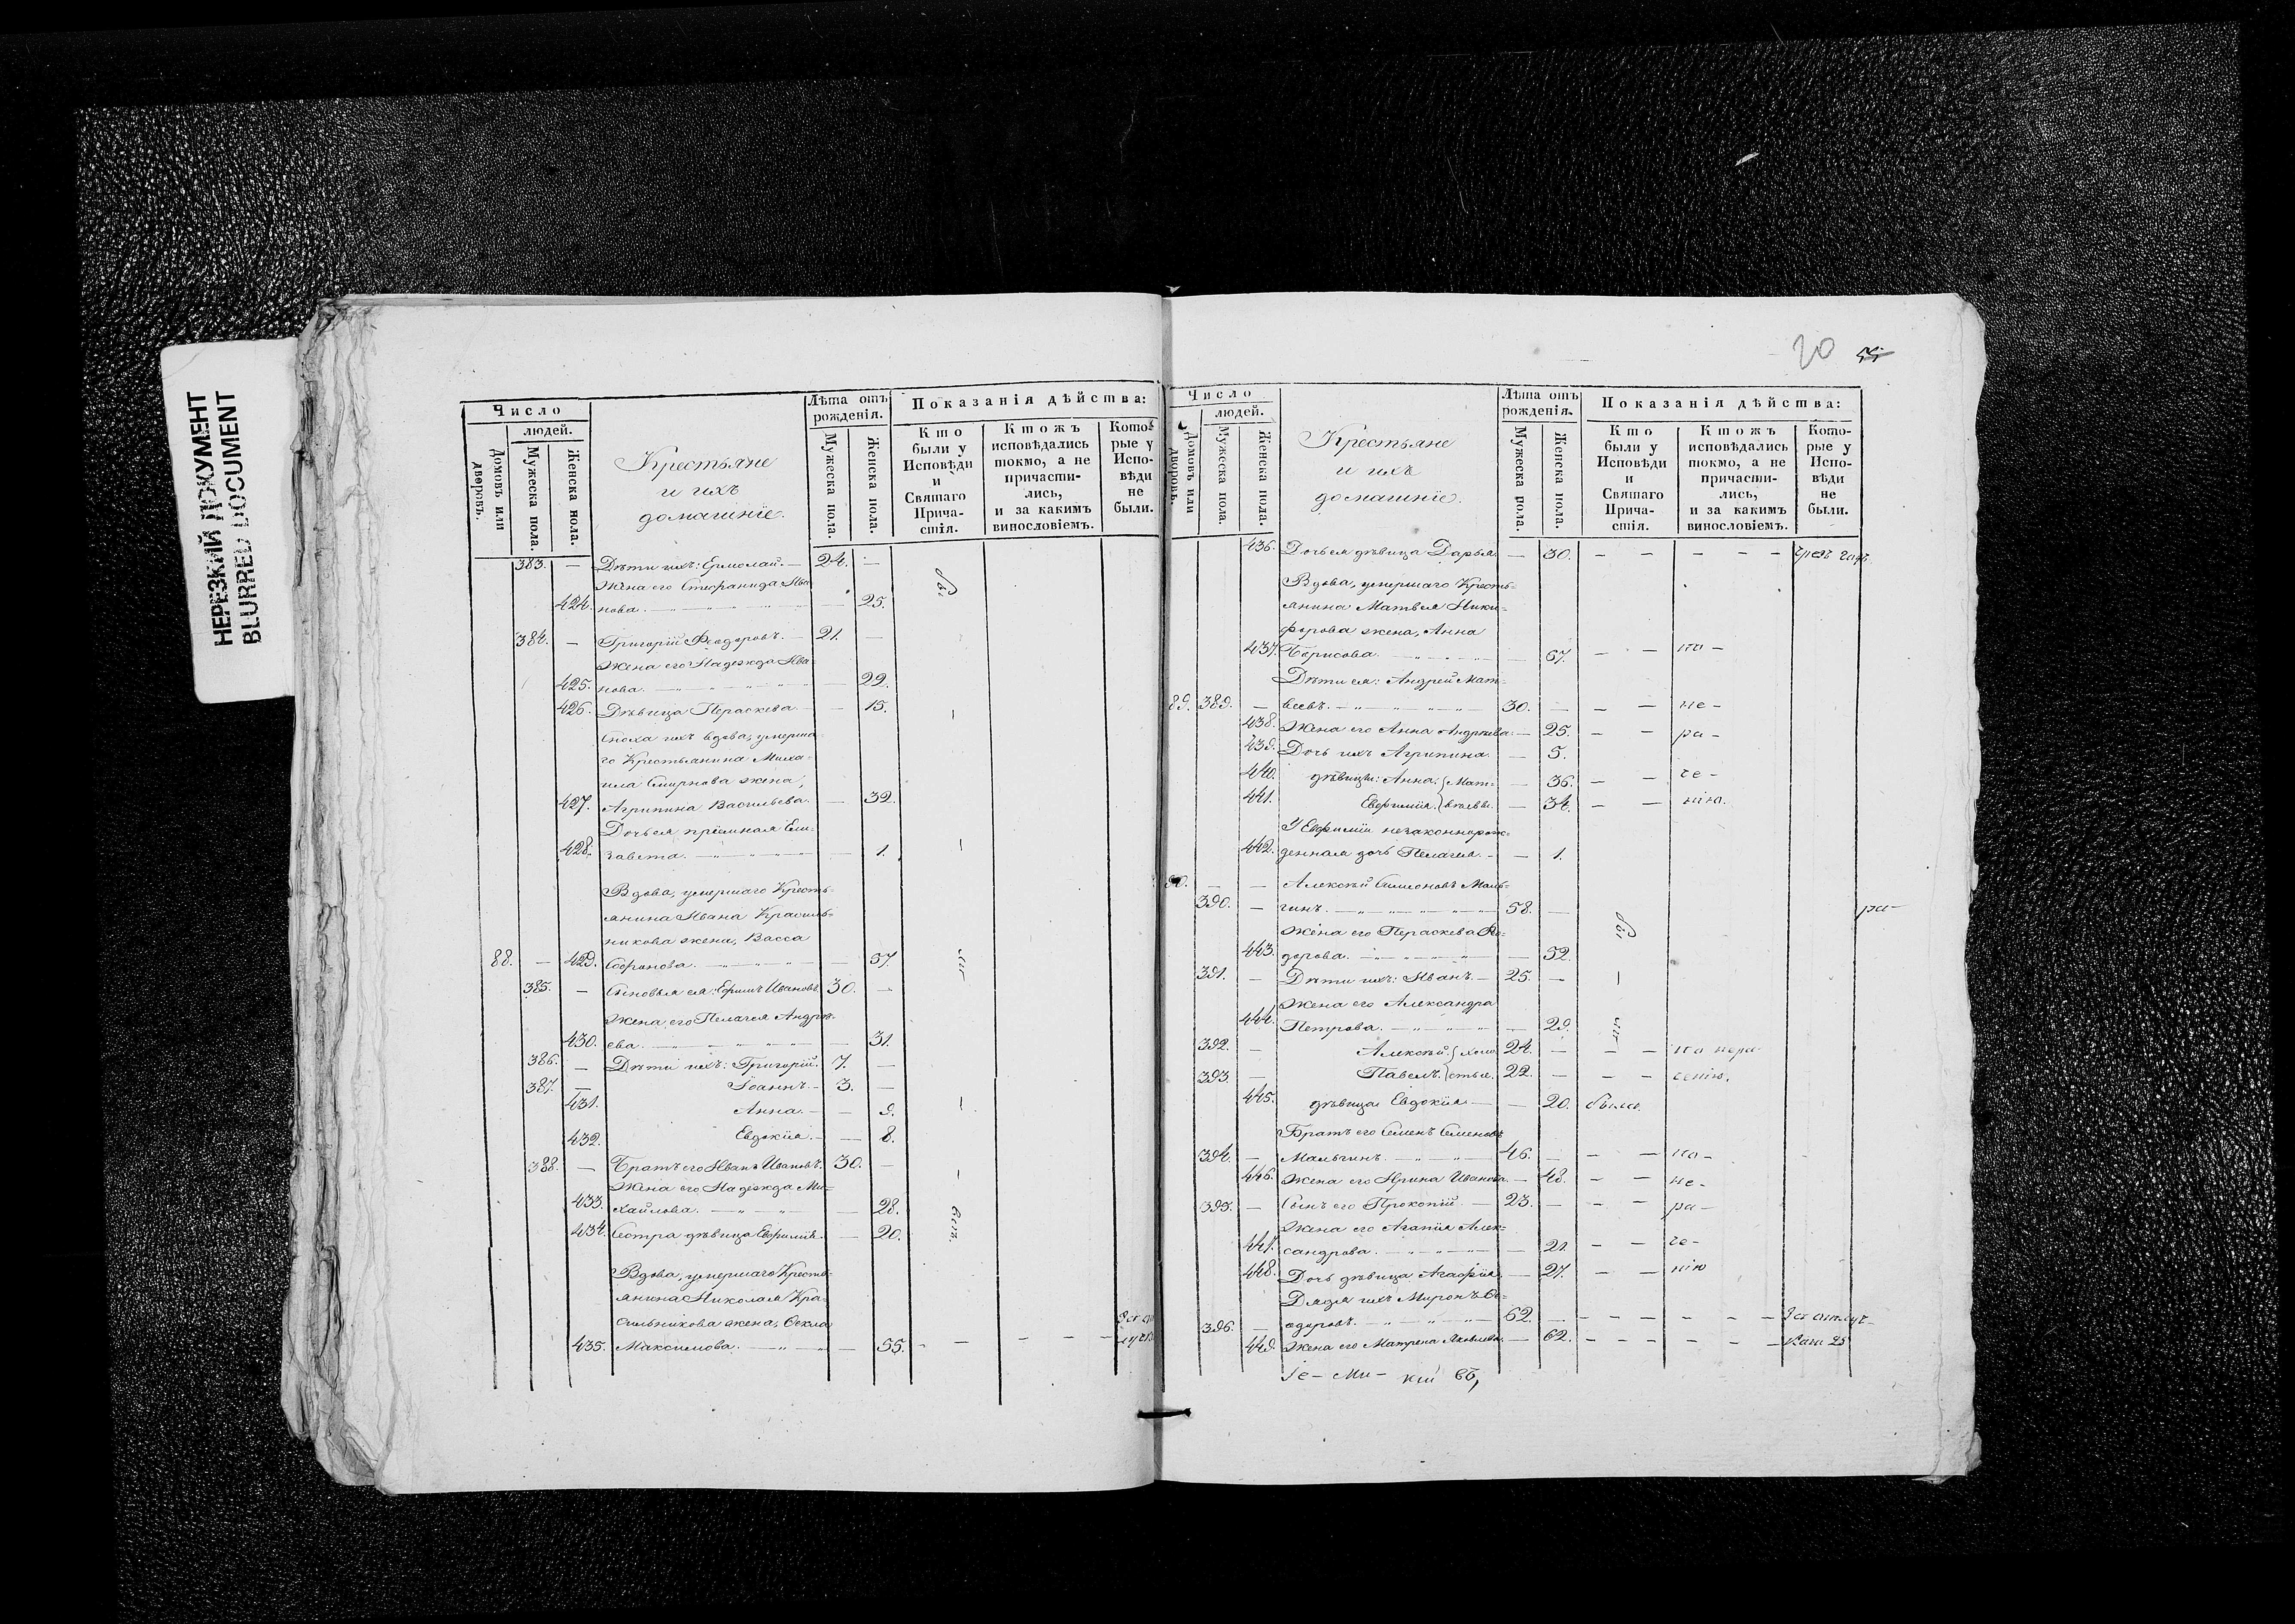 НЕРЕЗКИЙ ДОКУМЕНТ
BLURRED DOCUMENT
Число
людей.
Домовъ или дворовъ.
Мужеска пола.
Женска пола.
Крестьяне
и ихъ
домашніе.
Лѣта отъ
рожденія.
Мужеска пола.
Женска пола.
Показанія дѣйства:
Кто
были у
Исповѣди
и
Святаго
Прича-
стія.
Ктожъ
исповѣдались
токмо, а не
причасти-
лись,
и за какимъ
винословіемъ.
Кото-
рые у
Испо-
вѣди
не
были.
383. — Дѣти ихъ: Ермолай. — 24. —
Жена его Стефанида Ива-
424. нова. — 25.
384. — Григорій Феодоровъ. — 21. —
Жена его Надежда Ива-
425. нова. — 22.
426. Дѣвица Параскева — 15.
Сноха ихъ вдова, умерша-
го Крестьянина Миха-
ила Смирнова жена,
427. Агрипина Васильева. — 32.
Дочь ея пріемная Ели-
428. завета. — 1.
Вдова, умершаго Кресть-
янина Ивана Красиль-
никова жена, Васса
88. — 429. Софонова. — 57.
385. — Сыновья ея: Ефимъ Ивановъ 30. —
Жена его Пелагея Андре-
430. ева. — 31.
386. — Дѣти ихъ: Григорій. 7. —
387. — Іоаннъ. — 3. —
431. Анна. — — 9.
432. Евдокія. — — 8.
388. — Братъ его Иванъ Ивановъ. 30. —
Жена его Надежда Ми-
433. хайлова. — 28.
434. Сестра дѣвица Евфимія. — 20.
Вдова, умершаго Кресть-
янина Николая Кра-
сильникова жена, Фекла
435. Максимова. — 55. — — — — —
20
Число
людей.
Домовъ или дворовъ.
Мужеска пола.
Женска пола.
Крестьяне
и ихъ
домашніе.
Лѣта отъ
рожденія.
Мужеска пола.
Женска пола.
Показанія дѣйства:
Кто
были у
Исповѣди
и
Святаго
Прича-
стія.
Ктожъ
исповѣдались
токмо, а не
причасти-
лись,
и за какимъ
винословіемъ.
Кото-
рые у
Испо-
вѣди
не
были.
436. Дочь ея дѣвица Дарья — 30. — — — — —
Вдова, умершаго Кресть-
янина Матвея Ники-
форова жена, Анна
437. Борисова. — 67. — — по —
Дѣти ея: Андрей Мат-
89. 389. — веевъ. — 30. — — — не —
438. Жена его Анна Андреева. — 25. — — ра —
439. Дочь ихъ Агрипина. — 5.
440. дѣвицы: Анна. Мат- — 36. — — че —
441. Евфимія. вѣевы. — 34. — — нію.
У Евфиміи незаконнорож-
442. денная дочь Пелагея. — — 1.
90. — — Алексѣй Симеоновъ Маль-
390. — гинъ. — 58. —
Жена его Параскева Фе-
443. дорова. — 52.
391. — Дѣти ихъ: Иванъ. — 25. —
Жена его Александра
444. Петрова. — 29.
392. — Алексѣй. холо- 24. — — — по нера-
393. — Павелъ. стые. 22. — — —
445. дѣвица Евдокія — — 20. были.
Братъ его Семенъ Семеновъ
394. — Мальгинъ. — 46. — — — по —
446. Жена его Ирина Иванова. — 48. — — не —
395. — Сынъ его Прокопій. — 23. — — — ра —
Жена его Агапія Алек-
447. сандрова. — 21. — — че —
448. Дочь дѣвица Агафія. — 27. — — нію
Дядя ихъ Миронъ Фе-
396. — одоровъ. — 62. — — — — — — За отлуч-
449. Жена его Матрена Яковлева. — 62. — — — — —